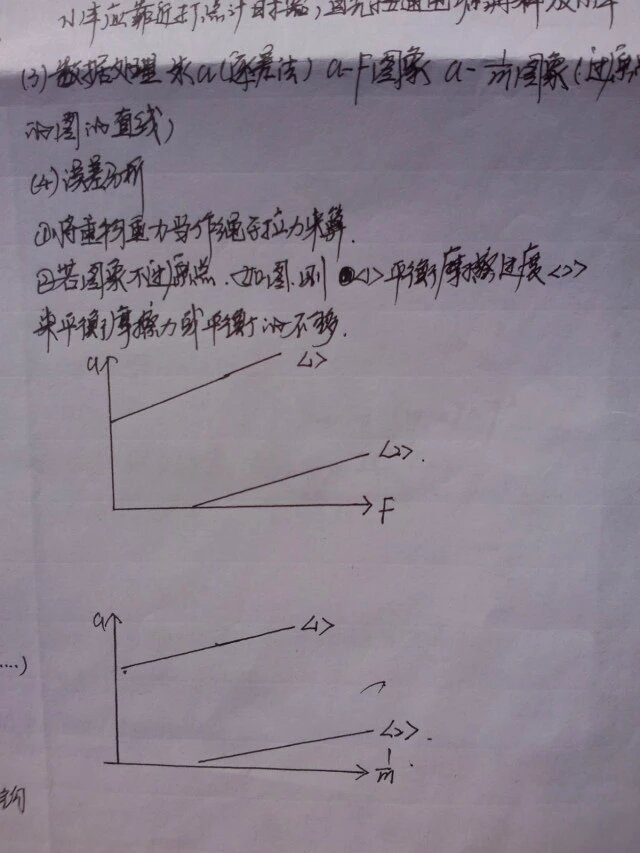 小车应靠近打点计时器，且先接通电源再释放小车
(3) 数据处理 求a(逐差法) a-F图象 a-1/m图象(过原点
的图的直线)
(4) 误差分析
①将重物重力当作绳子拉力来算.
②若图象不过原点.如图.则<1>平衡摩擦过度<2>
未平衡摩擦力或平衡的不够.
a
<1>
<2>.
F
a
<1>
<2>.
1/m.
....)